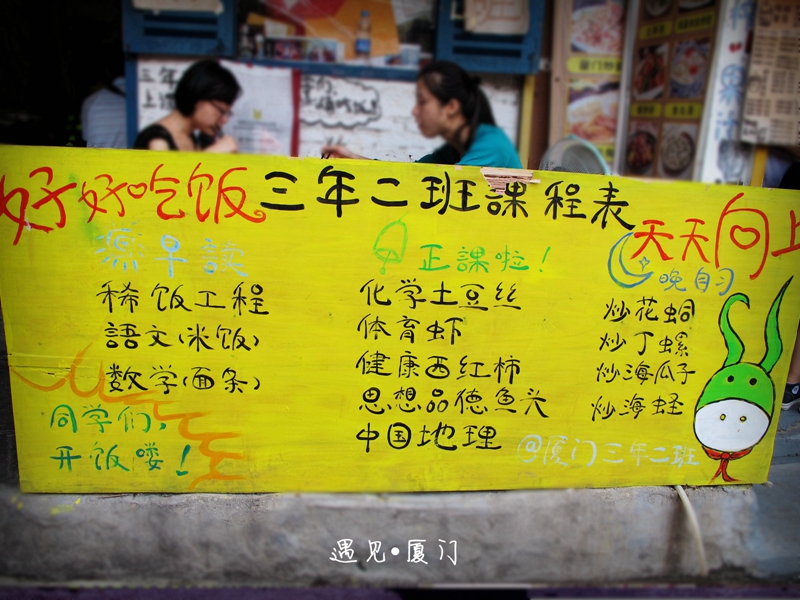 好好吃饭 三年二班課程表 天天向上
早読
稀饭工程
語文(米饭)
数学(面条)
同学们,
开饭喽!
正課啦!
化学土豆丝
体育虾
健康西红柿
思想品德鱼头
中国地理
晚自习
炒花蛤
炒丁螺
炒海瓜子
炒海蛏
@厦门三年二班
遇见·厦门